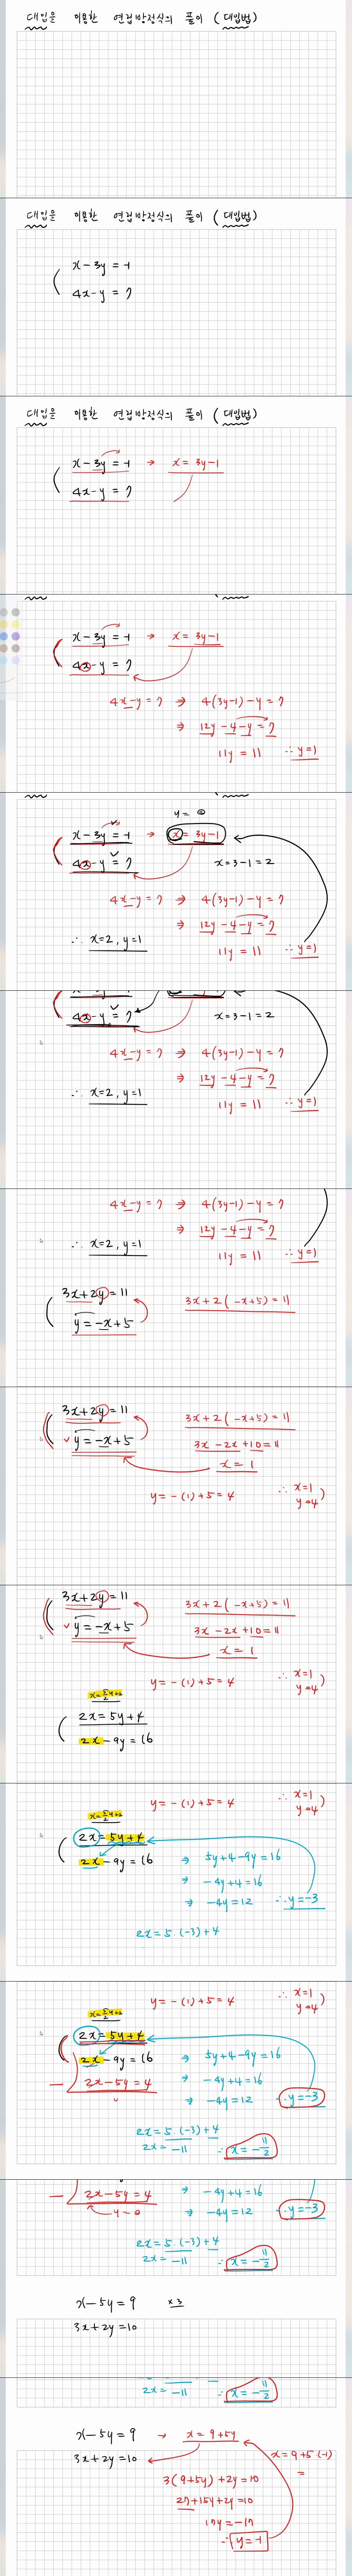 대입을 이용한 연립방정식의 풀이 (대입법)
대입을 이용한 연립방정식의 풀이 (대입법)
x-3y=-1
4x-y=7
대입을 이용한 연립방정식의 풀이 (대입법)
x-3y=-1 → x=3y-1
4x-y=7
x-3y=-1 → x=3y-1
4x-y=7
4x-y=7 ⇒ 4(3y-1)-y=7
⇒ 12y-4-y=7
11y=11 ∴ y=1
y=@
x-3y=-1 → x=3y-1
4x-y=7 x=3-1=2
4x-y=7 ⇒ 4(3y-1)-y=7
⇒ 12y-4-y=7
∴ x=2, y=1 11y=11 ∴ y=1
4x-y=7 x=3-1=2
4x-y=7 ⇒ 4(3y-1)-y=7
⇒ 12y-4-y=7
∴ x=2, y=1 11y=11 ∴ y=1
4x-y=7 ⇒ 4(3y-1)-y=7
⇒ 12y-4-y=7
∴ x=2, y=1 11y=11 ∴ y=1
3x+2y=11 3x+2(-x+5)=11
y=-x+5
3x+2y=11 3x+2(-x+5)=11
y=-x+5 3x-2x+10=11
x=1
y=-(1)+5=4 ∴ x=1
y=4
3x+2y=11 3x+2(-x+5)=11
y=-x+5 3x-2x+10=11
x=1
y=-(1)+5=4 ∴ x=1
y=4
2x=5y+4
2x-9y=16
y=-(1)+5=4 ∴ x=1
y=4
2x=5y+4
2x-9y=16 → 5y+4-9y=16
→ -4y+4=16
→ -4y=12 ∴ y=-3
2x=5·(-3)+4
y=-(1)+5=4 ∴ x=1
y=4
2x=5y+4
2x-9y=16 → 5y+4-9y=16
- 2x-5y=4 → -4y+4=16
→ -4y=12 ∴ y=-3
2x=5·(-3)+4
2x=-11 ∴ x=-11/2
- 2x-5y=4 → -4y+4=16
→ -4y=12 ∴ y=-3
2x=5·(-3)+4
2x=-11 ∴ x=-11/2
x-5y=9 ×3
3x+2y=10
2x=-11 ∴ x=-11/2
x-5y=9 → x=9+5y
3x+2y=10 x=9+5·(-1)
=
3(9+5y)+2y=10
27+15y+2y=10
17y=-17
∴ y=-1